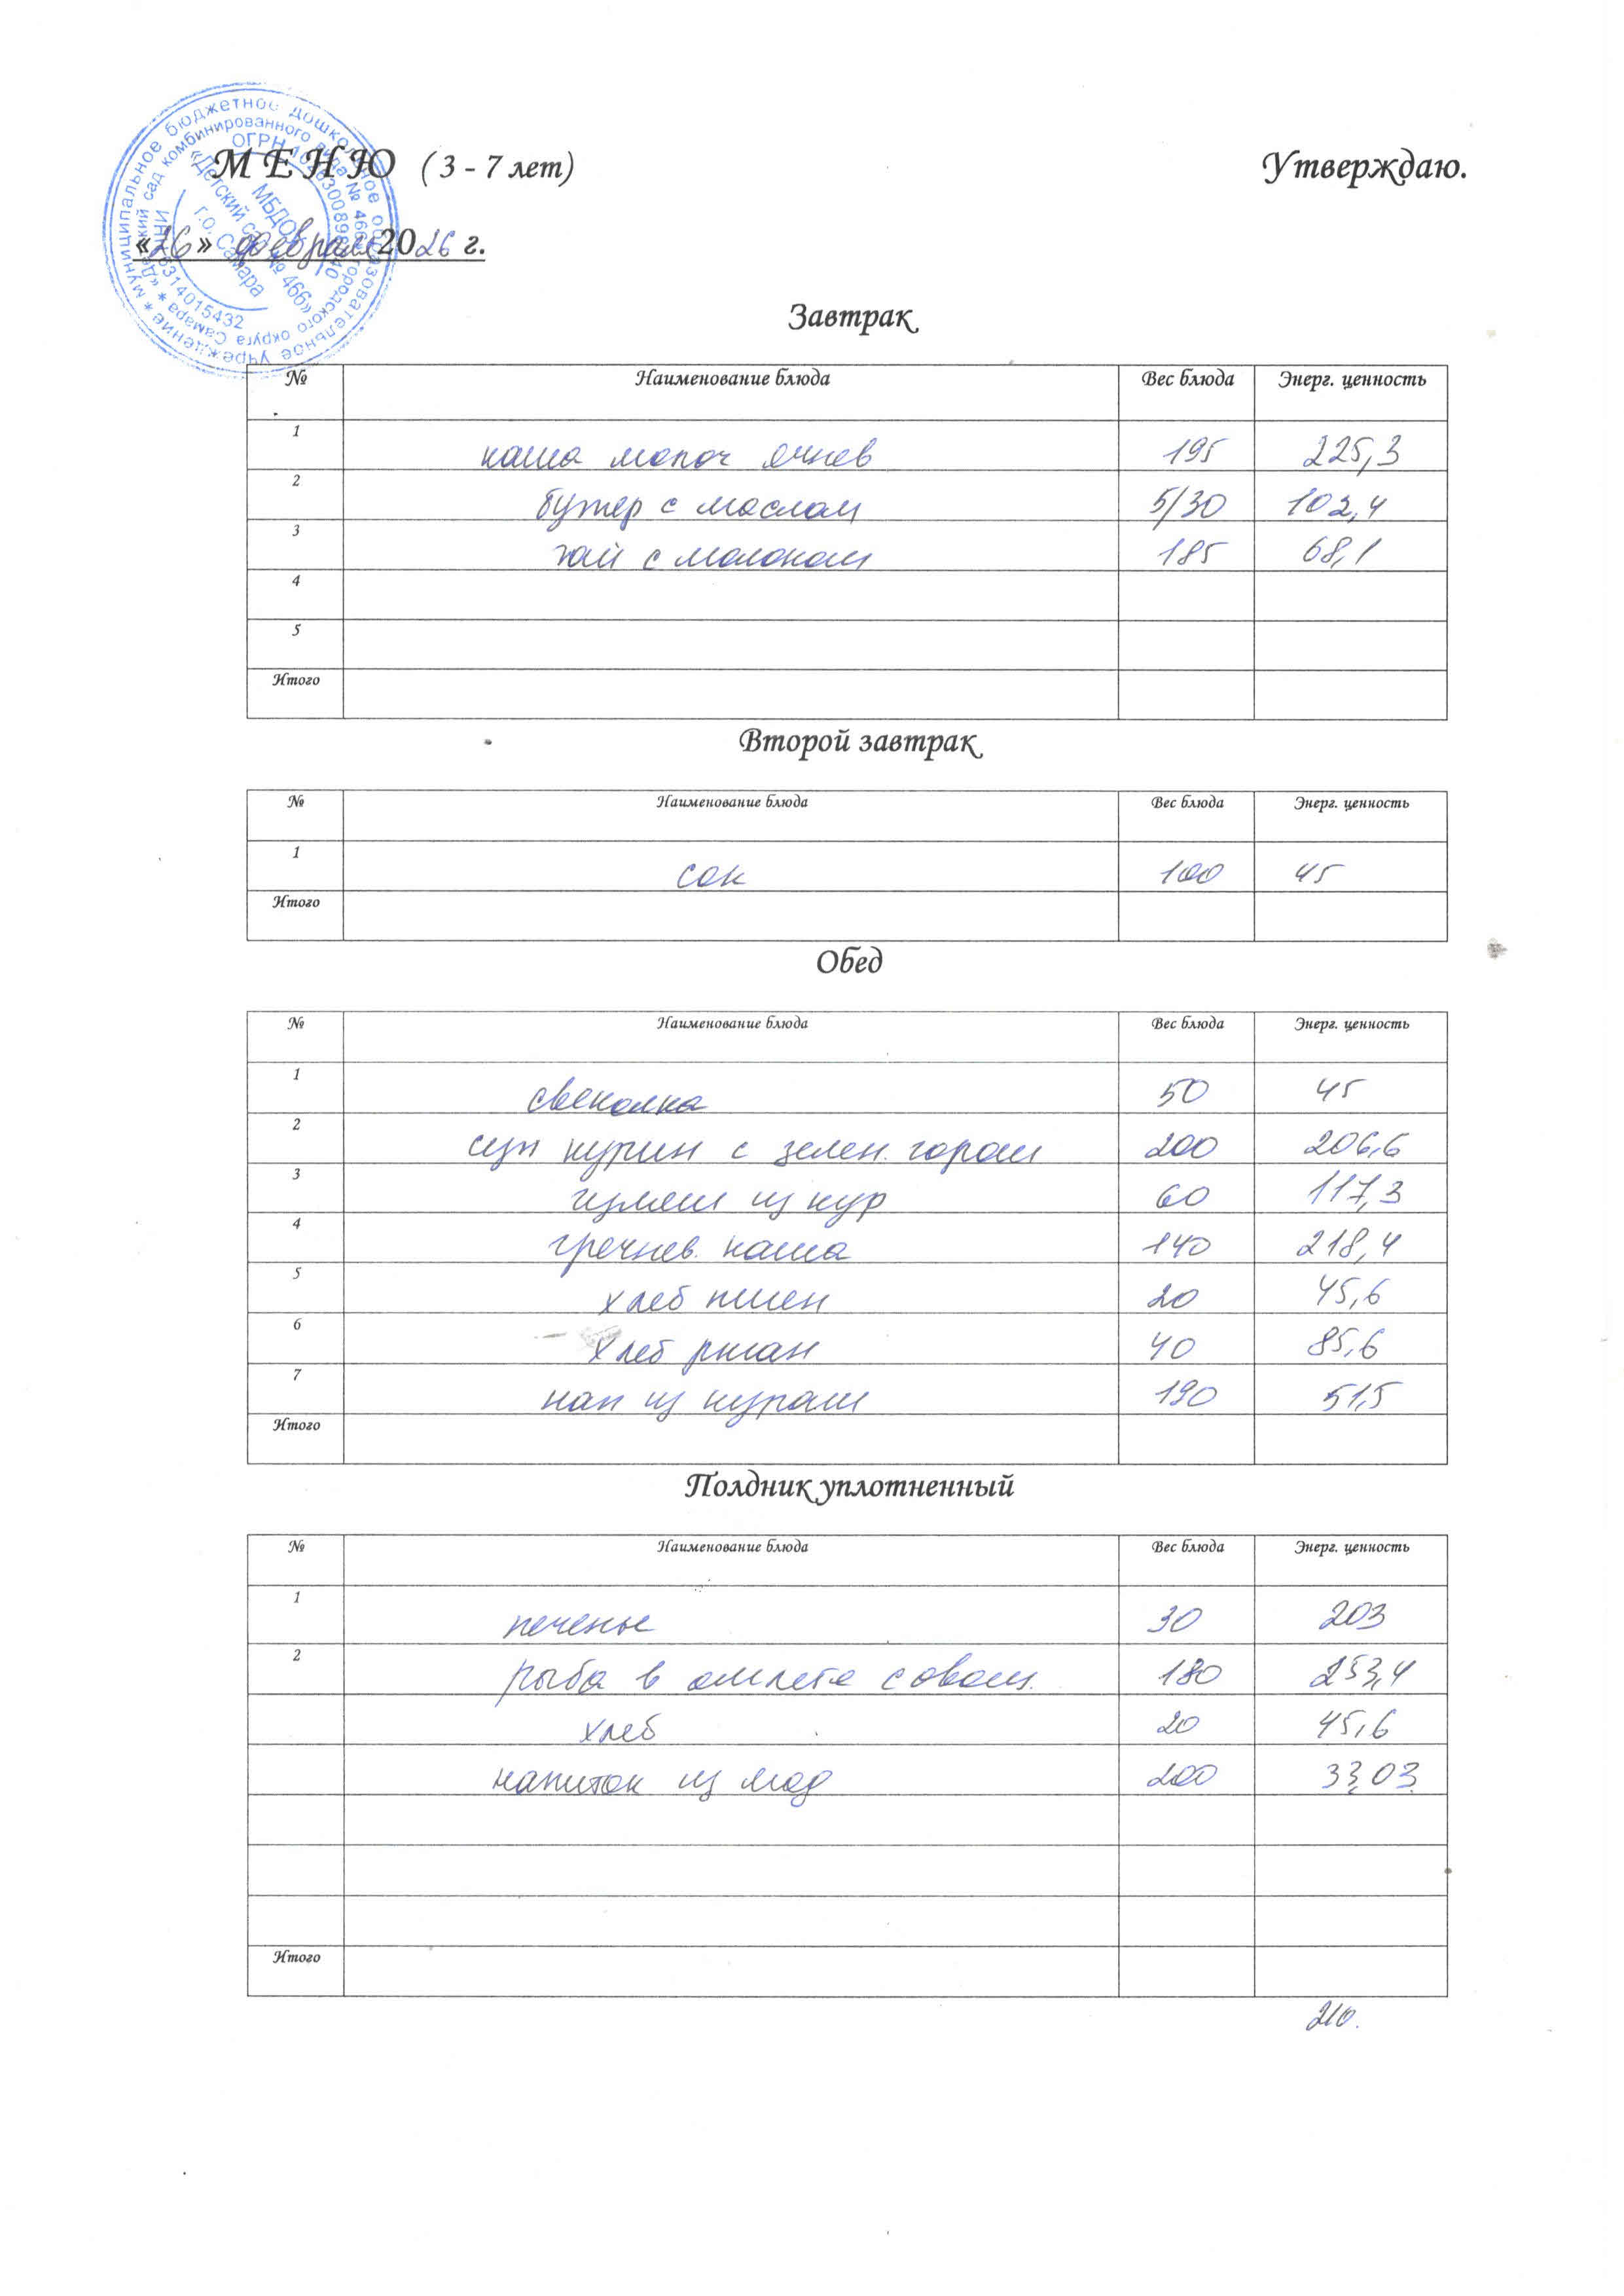 муниципальное бюджетное дошкольное образовательное учреждение
«Детский сад комбинированного вида № 466» городского округа Самара
ОГРН
ИНН 6314015432
МБДОУ
«Детский сад № 466»
г.о. Самара
МЕНЮ (3 - 7 лет) Утверждаю.
«26» февраля 2026 г.
Завтрак
№ Наименование блюда Вес блюда Энерг. ценность
1 каша молоч ячнев 195 225,3
2 бутер с маслом 5/30 102,4
3 чай с молоком 185 68,1
4
5
Итого
Второй завтрак
№ Наименование блюда Вес блюда Энерг. ценность
1 сок 100 45
Итого
Обед
№ Наименование блюда Вес блюда Энерг. ценность
1 свеколка 50 45
2 суп курин с зелен. горош 200 206,6
3 из кур 60 117,3
4 гречнев. каша 140 218,4
5 хлеб пшен 20 45,6
6 хлеб ржан 40 85,6
7 нап из 190 51,5
Итого
Полдник уплотненный
№ Наименование блюда Вес блюда Энерг. ценность
1 печенье 30 203
2 рыба в омлете с овощ. 180 253,4
хлеб 20 45,6
напиток из 200 33,03
Итого
210.